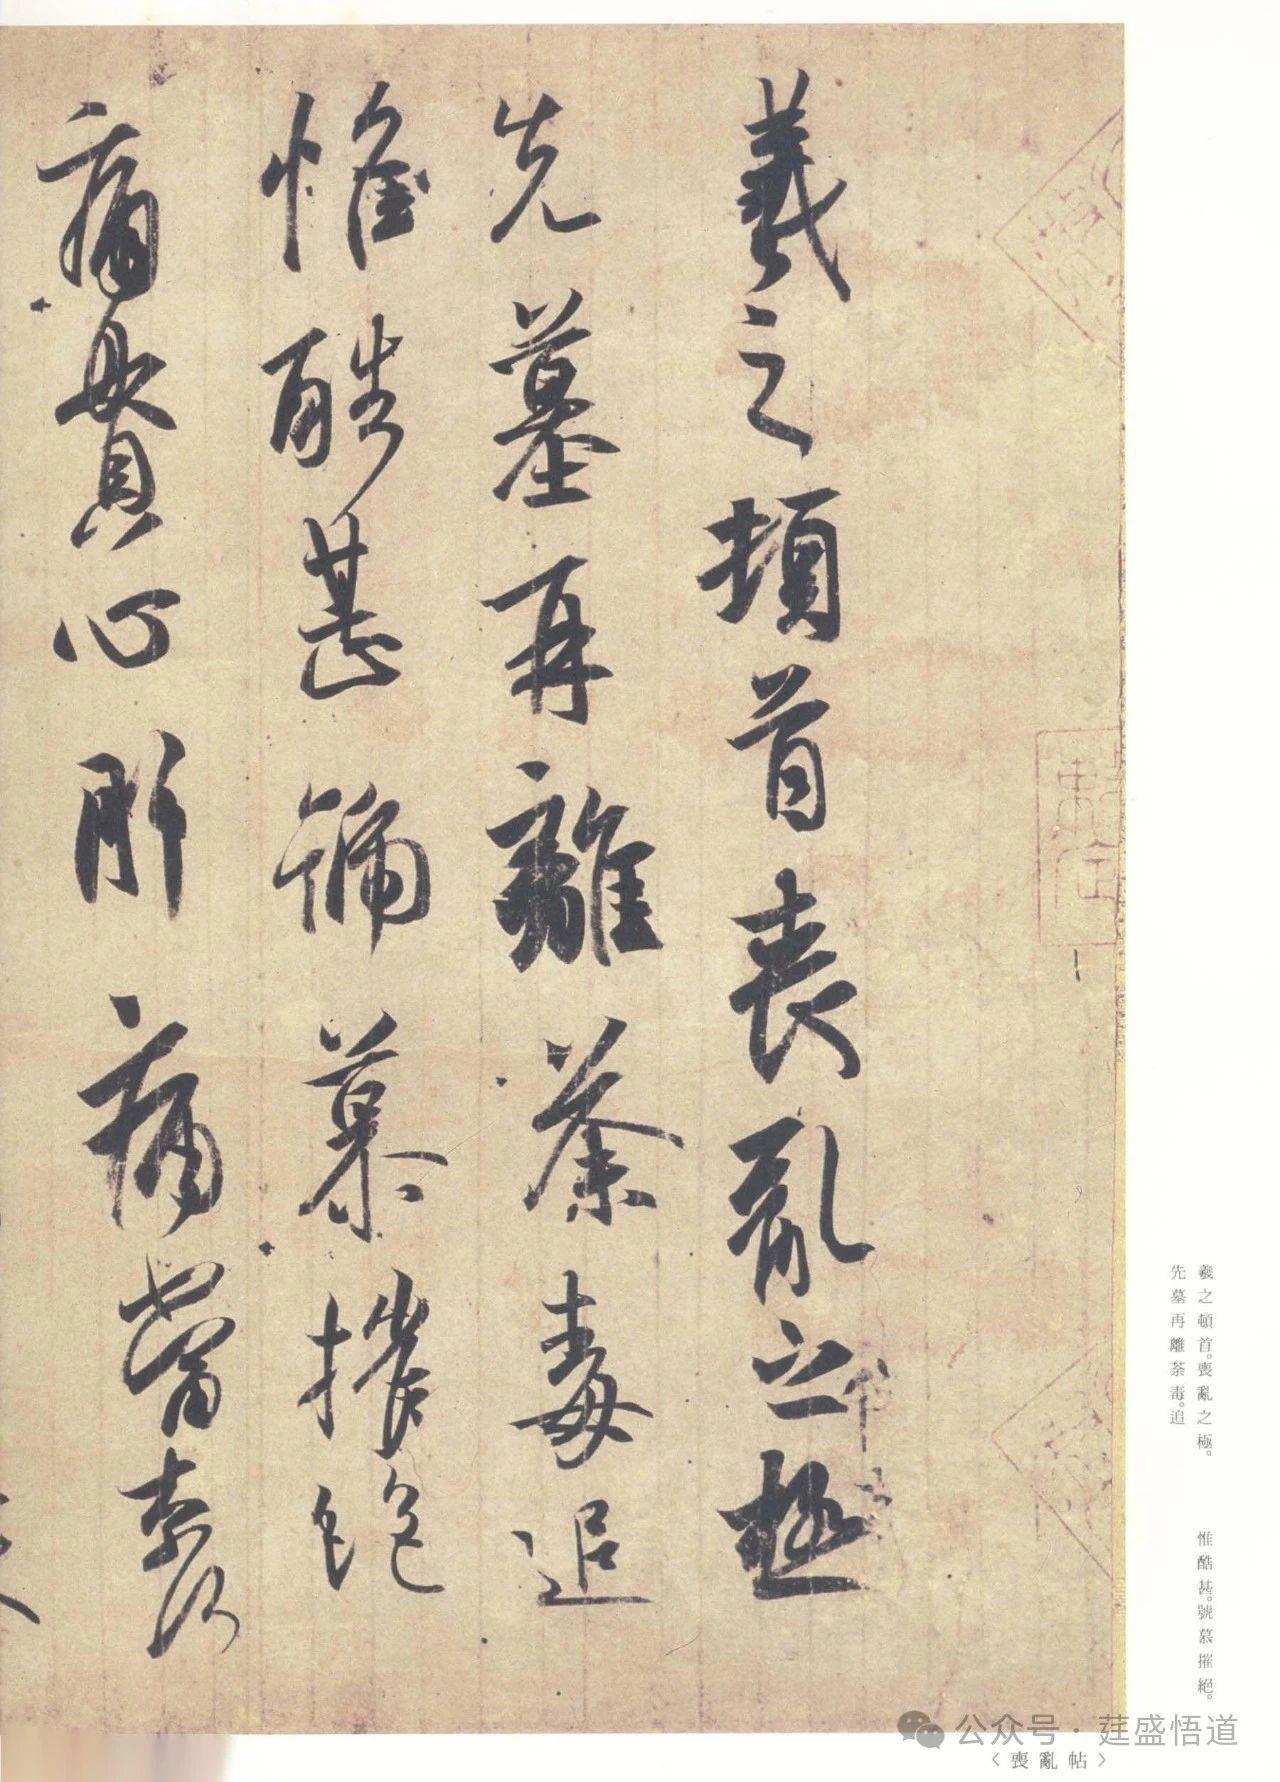 羲之頓首喪亂之極
先墓再離荼毒追
惟酷甚號慕摧絕
痛貫心肝痛當柰何
羲之頓首。喪亂之極。
先墓再離荼毒。追
惟酷甚。號慕摧絕。
〈喪亂帖〉
公众号 · 莛盛悟道